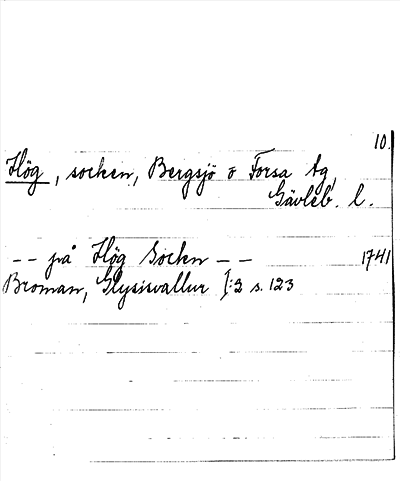 10.
Hög, socken, Bergsjö o Forsa tg,
Gävleb. l.
-- på Hög Socken -- 1741
Broman, Glysisvallur I:2 s. 123